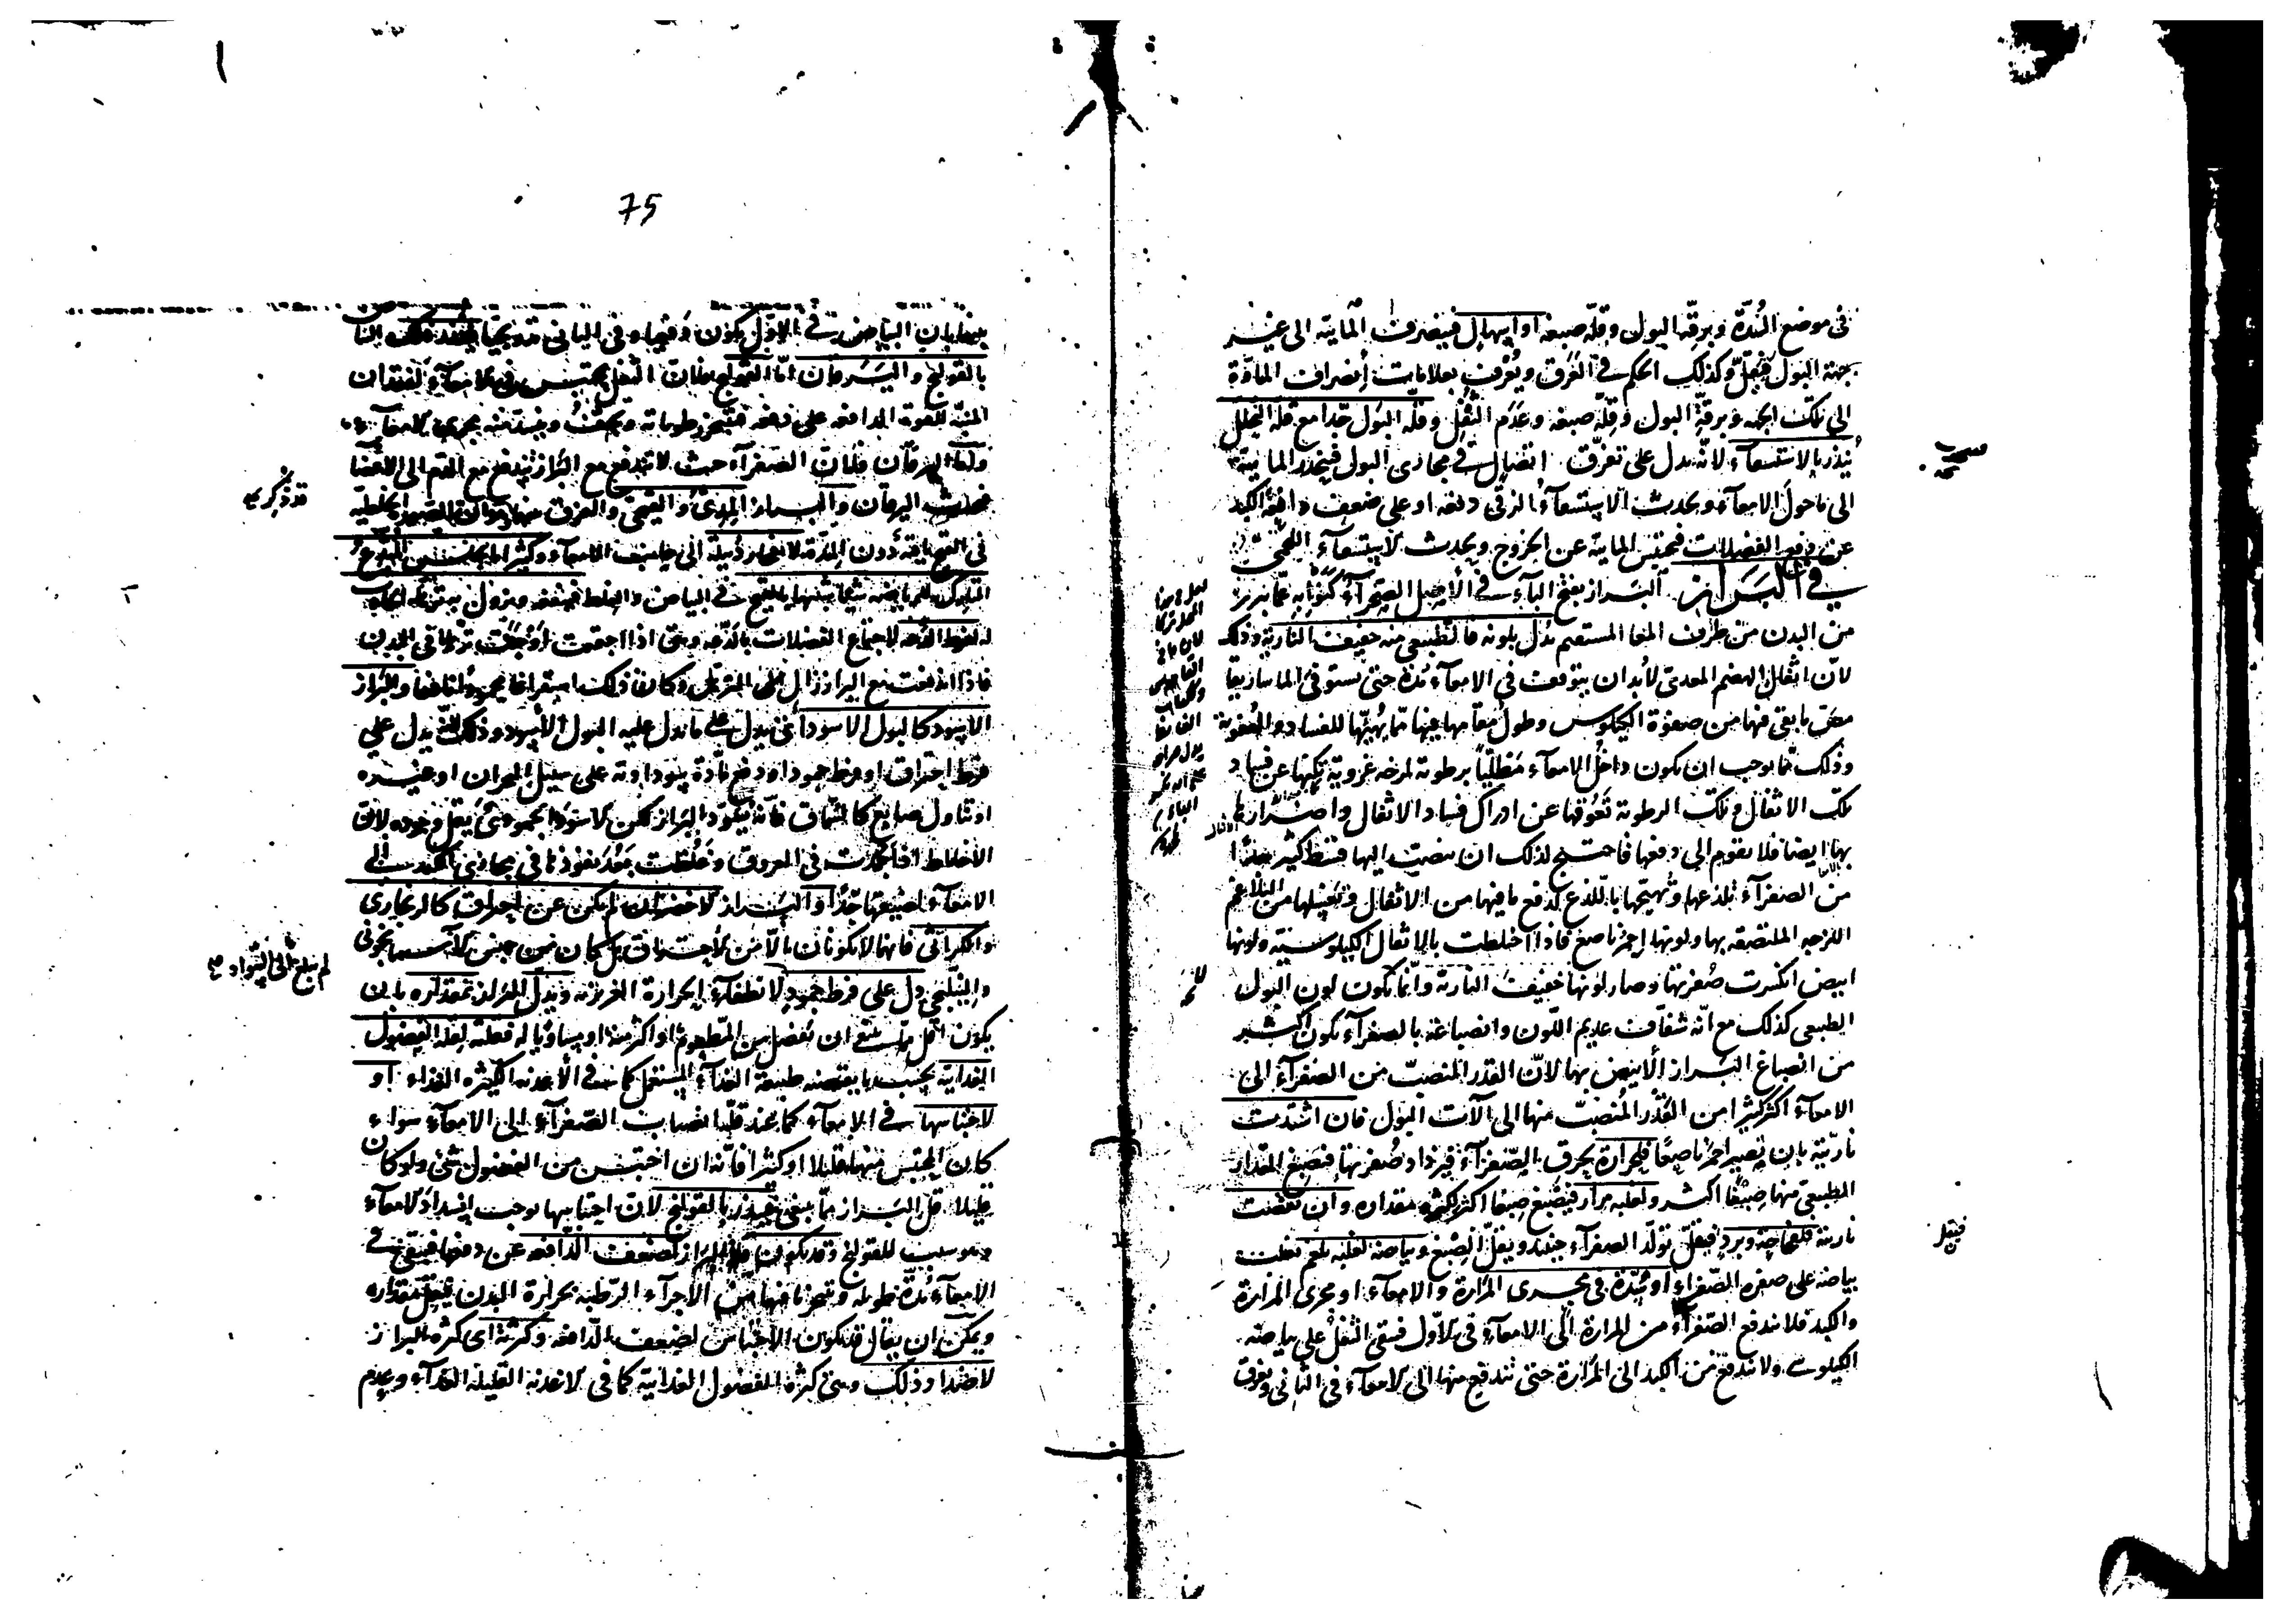 في موضع السُدّة وبرقّة البول وقلّة صبغه او اسهال فينصرف المائية الى غير
جهة البول فيقلّ وكذلك الحكم في العَرَق ويُعْرَف بعلامات أنصراف المادّة
الى تلك الجهة وبرقّة البول وقلّة صبغه وعَدَم الثُفْل وقلّة البَول جدّا مع قلة التحلل
يُنذر بالاستسقاء لانّه يدل على تفرّق اتصال في مجارى البول فينحدر المائية
الى ماحول الامعآء ويحدث الاستسقآء الزقى دفعه او على ضعف دافعة الكبد
عن دفع الفضلات فيحتبس المائية عن الخروج ويحدث الاستسقآء اللحمىّ
في البَرَاز البَراز بفتح البآء في الأصل الصحرآء كُنّى به عمّا يبرز
من البدن من طرف المعا المستقيم يدل بلونه فالطبيعى منه خفيف النارية وذلك
لانّ اثقال الهضم المعدىّ لابُد ان يتوقف في الامعآء مُدّة حتى يستوفى الماساريقا
مصّ ما بقى فيها من صفوة الكيلوس وطول مقامها فيها ممّا يُهيّئها للفساد والعفونة
وذلك ممّا يوجب ان يكون داخل الامعآء مَطليّاً برطوبة لزجة غروية عن فساد
تلك الاثقال وتلك الرطوبة تَعُوقها عن ادراك فساد الاثقال واضرارها
بها ايضا فلا تقوم الى دفعها فاحتيج لذلك ان ينصبّ اليها قسط كثير
من الصفرآء تلذعها وتهيّجها باللذع لدفع ما فيها من الاثقال وتغسلها من البلاغم
اللزجه الملتصقه بها ولونها احمر ناصع فاذا اختلطت بالاثقال الكيلوسيّة ولونها
ابيض انكسرت صُفرتها وصار لونها خفيف النارية وانّما يكون لون البول
الطبيعى كذلك مع انّه شفّاف عديم اللّون وانصباغه بالصفرآء يكون اكثر
من انصباغ البَراز الأبيض بها لانّ القدر المنصبّ من الصفرآء الى
الامعآء اكثر كثيرا من القَدْر المُنصبّ منها الى آلات البول فان اشتدت
ناريّته بان يصير احمر ناصعًا فلحرارة يحرق الصّفرآء فيزداد صُفرتها فيصبغ المقدار
الطبيعىّ منها صبغًا اكثر ولغلبه مرار فيصبغ صبغا اكثر لكثره مقداره وان نقصت
ناريته فلفجاجة وبرد فيقلّ تولّد الصفرآء حينئذ ويقلّ الصّبغ وبياضه لغلبه بلغم يغلب
بياضه على صفره الصّفراء او سُدّة في مجرى المَرارة والامعآء او مجرى المرارة
والكبد فلا تدفع الصّفرآء من المرارة الى الامعآء في الاوّل فيبقى الثفلُ على بياضه
الكيلوسى ولا تدفع من الكبد الى المَرارة حتى تندفع منها الى الامعآء في الثانى ويفرق
فيقل
75
بينهما بان البياض في الاوّل يكون دفعيا وفي الثانى تدريجيّا
بالقولنج واليَرقان امّا القولنج فلانّ الثفل يحتبس في الامعآء لفقدان
المنبّه للقوة الدافعه على دفعه فيتبخر رطوباته ويجفّ وينسدّ منه مجرى الامعآء
وامّا اليرقان فلانّ الصفرآء حيث لا تندفع مع البُراز يندفع مع الدم الى الأعضا
فيحدث اليرقان والبراز المِدّىّ والقيحى والفرق
في القيح دون المِدّة لانفجار دُبيلة الى جانب الامعآء وكثيرا ما يجلس المُتدّع
المتارك للرياضه شيئا شبيها بالقيح في البياض والغلظ فينتفع به ويزول به ترهّله الحادث
له لفرط الدَّعة لاجتماع الفضلات بالدّعه
فاذا اندفعت مع البراز زال الترهّل وكان ذلك استفراغا محمودًا نافعا والبَراز
الاسود كالبول الاسود أى يدل على ما يدل عليه البول الأسود وذلك انّه يدل على
فرط احتراق او فرط جمود او دفع مادّة سوداوية على سبيل البحران او غيره
او تناول صابغ كالسّماق فانّه يُسَوّد البَراز لكن الاسود الجمودىّ يقلّ وجوده لانّ
الاخلاط اذا جمدت في العروق وغَلُظت بَعُدَ نفوذها في مجارى الكبد الى
الامعآء لضيقها جدّا والبَراز الاخضر ان لم يكن عن احتراق كالزنجارى
والكراثى فانهما لا يكونان الّا من الاحتراق بل كان من جنس الآسمانجونى
والنيلجى دلّ على فرط جمود لانطفآء الحرارة الغريزيه ويدل البَراز بمقداره بان
يكون اقلّ ممّا ينبغى ان يَفضل من المطعوم او اكثر منه او مساويا له فقلّته لقلّة الفضول
الغذائية بحسب ما يقتضيه طبيعة الغذآء المستعمل كما في الأغذية الكثيره الغذاء او
لاحتباسها في الامعآء كما عند قلّة انصباب الصّفرآء الى الامعآء سواء
كان المحتبس منها قليلا او كثيرا فانه ان احتبس من الفضول شئ ولو كان
قليلا قل البَراز ممّا ينبغى فينذر بالقولنج لانّ احتباسها يوجب انسداد الامعآء
وهو سبب للقولنج وقد يكون قلّة البراز لضعف الدّافعه عن دفعها فيبقى في
الامعآء مُدّة طويله ويتبخر ما فيها من الاجزآء الرّطبه بحرارة البدن فيقلّ مقداره
ويمكن ان يقال قد يكون الاحتباس لضعف الدّافعه وكثرته اى كثرة البراز
لاضداد ذلك وهى كثرة الفضول الغذائية كما في الاغذية القليلة الغذآء وعدم
لم يبلغ الى السّواد صح